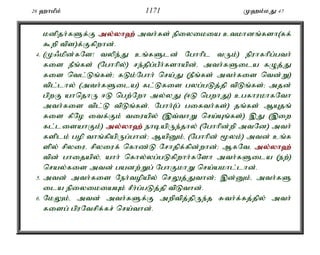 26 ஹாமீம் 1171 முஹம்மது 47
மனிதர்களுக்கு அல்லாஹ் அவர்கள் நிலைமையை உவமானங்களாகக்
கூறி விளக்குகிறான்.
4. (முஃமின்களே! வலிந்து உங்களுடன் போரிட வரும்) நிராகரிப்பவர்
களை நீங்கள் (போரில்) சந்திப்பீர்களாயின், அவர்களுடைய கழுத்து
களை வெட்டுங்கள்; கடும்போர் செய்து (நீங்கள் அவர்களை வென்று)
விட்டால் (அவர்களுடைய) கட்டுகளை பலப்படுத்தி விடுங்கள்; அதன்
பிறகு யாதொரு ஈடு பெற்றோ அல்லது (ஈடு பெறாது) உபகாரமாகவோ
அவர்களை விட்டு விடுங்கள். போர்(ப் பகைவர்கள்) தங்கள் ஆயுதங்
களை கீழே வைக்கும் வரையில் (இவ்வாறு செய்யுங்கள்) இது (இறை
கட்டளையாகும்) அல்லாஹ் நாடியிருந்தால் (போரின்றி அவனே) அவர்
களிடம் பழி வாங்கியிருப்பான்; ஆயினும், (போரின் மூலம்) அவன் உங்க
ளில் சிலரை, சிலரைக் கொண்டு சோதிக்கின்றான்; ஆகவே, அல்லாஹ்
வின் பாதையில், யார் கொல்லப்படுகிறார்களோ அவர்களுடைய (நற்)
செயல்களை அவன் பயனற்றுப் போகுமாறு செய்யமாட்டான்.
5. அவன் அவர்களை நேர்வழியில் செலுத்துவான்; இன்னும், அவர்களு
டைய நிலைமையையும் சீர்ப்படுத்தி விடுவான்.
6. மேலும், அவன் அவர்களுக்கு அறிவித்திருந்த சுவர்க்கத்தில் அவர்
களைப் பிரவேசிக்கச் செய்வான்.